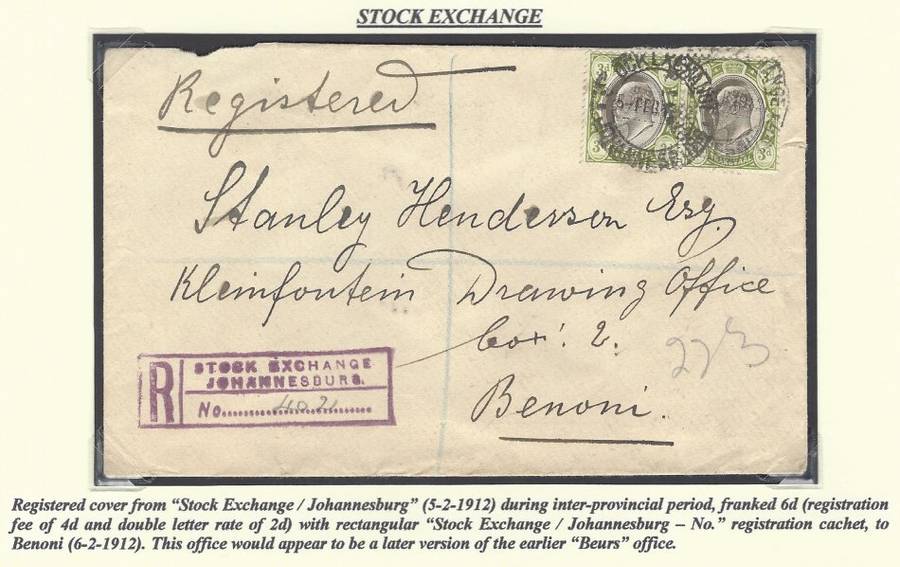 STOCK EXCHANGE
Registered
Stanley Henderson Esq.
Kleinfontein Drawing Office
box: 2.
Benoni.
R
STOCK EXCHANGE
JOHANNESBURG.
No. 4021
Registered cover from “Stock Exchange / Johannesburg” (5-2-1912) during inter-provincial period, franked 6d (registration
fee of 4d and double letter rate of 2d) with rectangular “Stock Exchange / Johannesburg – No.” registration cachet, to
Benoni (6-2-1912). This office would appear to be a later version of the earlier “Beurs” office.